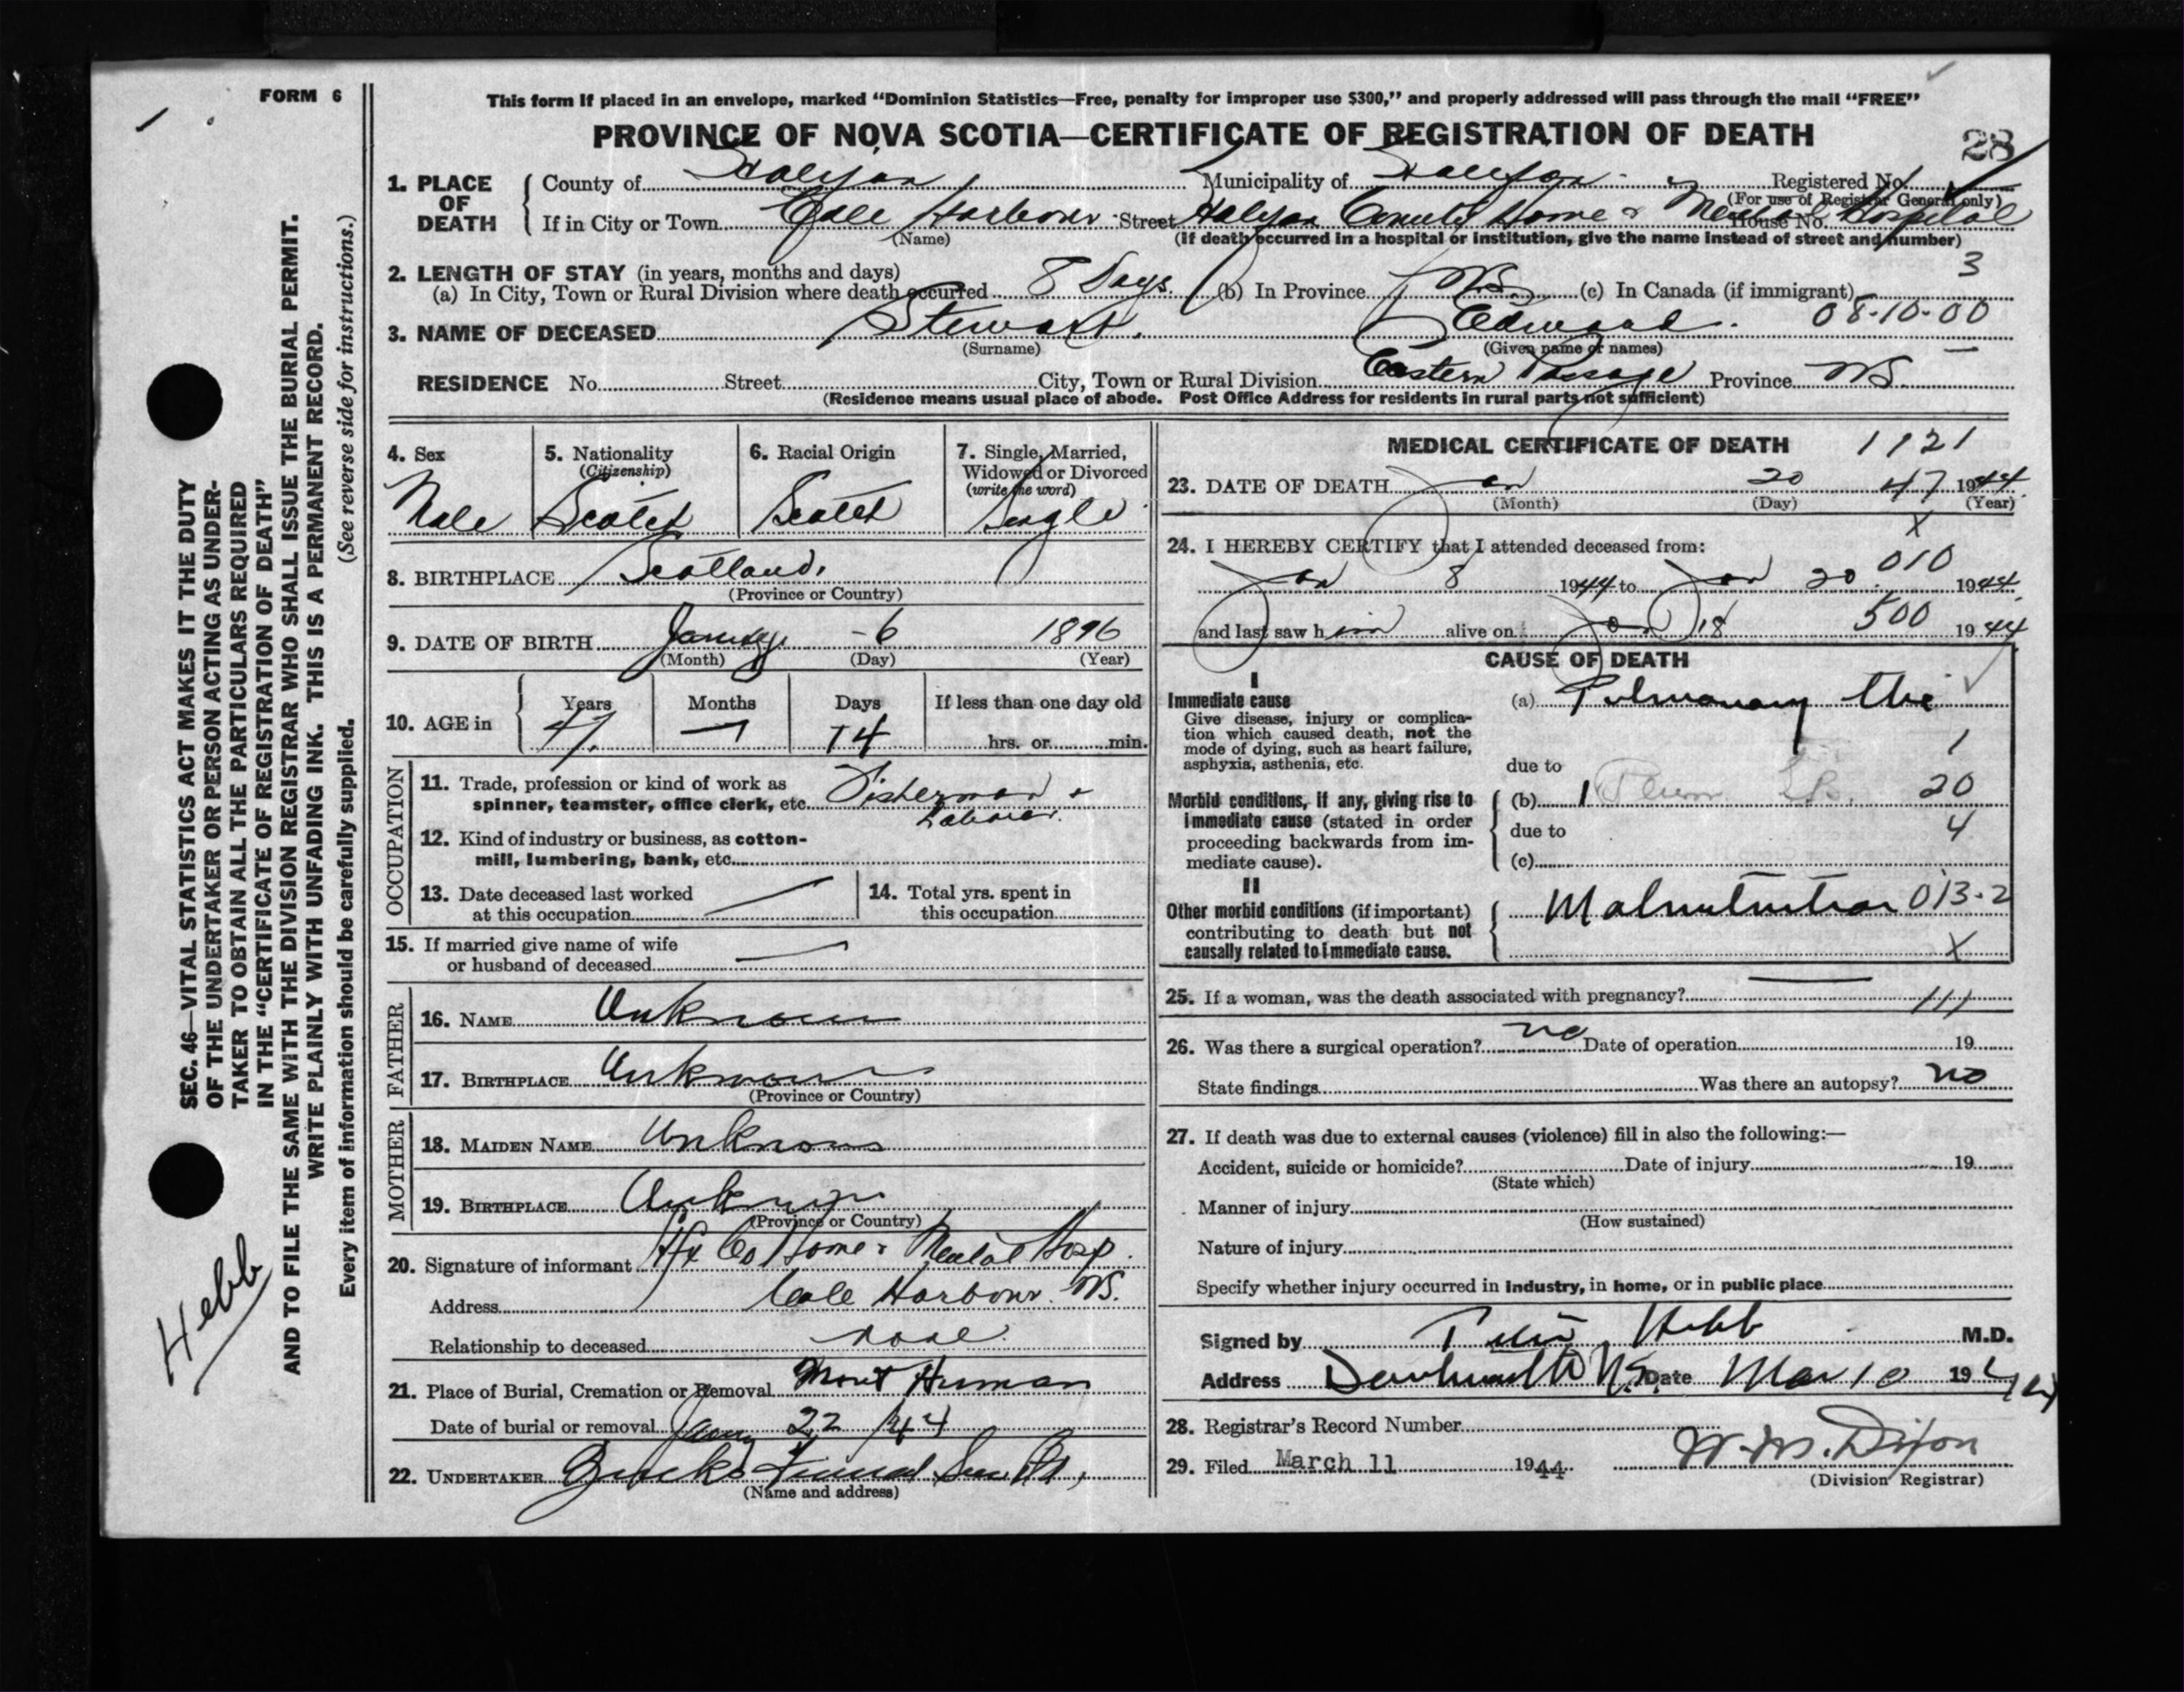 FORM 6
This form if placed in an envelope, marked "Dominion Statistics—Free, penalty for improper use $300," and properly addressed will pass through the mail "FREE"
PROVINCE OF NOVA SCOTIA—CERTIFICATE OF REGISTRATION OF DEATH
28
1. PLACE OF DEATH
County of Halifax Municipality of Halifax Registered No.
(For use of Registrar General only)
If in City or Town Cole Harbour Street Halifax County Home & Mental Hospital House No.
(Name) (If death occurred in a hospital or institution, give the name instead of street and number)
2. LENGTH OF STAY (in years, months and days) 3
(a) In City, Town or Rural Division where death occurred 8 Days. (b) In Province NS. (c) In Canada (if immigrant)
3. NAME OF DECEASED Stewart. Edward. 08-10-00
(Surname) (Given name or names)
RESIDENCE No. Street City, Town or Rural Division Eastern Passage Province NS.
(Residence means usual place of abode. Post Office Address for residents in rural parts not sufficient)
4. Sex 5. Nationality (Citizenship) 6. Racial Origin 7. Single, Married, Widowed or Divorced (write the word)
Male Scotch Scotch Single
8. BIRTHPLACE Scotland.
(Province or Country)
9. DATE OF BIRTH January -6 1896
(Month) (Day) (Year)
10. AGE in Years Months Days If less than one day old
47 — 14 hrs. or min.
OCCUPATION
11. Trade, profession or kind of work as
spinner, teamster, office clerk, etc. Fisherman +
Laborer.
12. Kind of industry or business, as cotton-
mill, lumbering, bank, etc.
13. Date deceased last worked
at this occupation —
14. Total yrs. spent in
this occupation
15. If married give name of wife
or husband of deceased —
FATHER
16. NAME Unknown
17. BIRTHPLACE Unknown
(Province or Country)
MOTHER
18. MAIDEN NAME Unknown
19. BIRTHPLACE Unknown
(Province or Country)
20. Signature of informant Hfx Co Home & Mental Hosp.
Address Cole Harbour. NS.
Relationship to deceased none.
21. Place of Burial, Cremation or Removal Mont Human
Date of burial or removal 22/44
22. UNDERTAKER Funeral
(Name and address)
MEDICAL CERTIFICATE OF DEATH 1121
23. DATE OF DEATH Jan 20 47 1944
(Month) (Day) (Year)
X
24. I HEREBY CERTIFY that I attended deceased from:
010
Jan 8 1944 to Jan 20 1944
and last saw him alive on Jan 18 500 1944
CAUSE OF DEATH
I
Immediate cause
Give disease, injury or complica-
tion which caused death, not the
mode of dying, such as heart failure,
asphyxia, asthenia, etc.
(a) Pulmonary
due to 1
Morbid conditions, if any, giving rise to
immediate cause (stated in order
proceeding backwards from im-
mediate cause).
(b) 20
due to 4
(c)
II
Other morbid conditions (if important)
contributing to death but not
causally related to immediate cause.
Malnutrition 013-2
X
25. If a woman, was the death associated with pregnancy? — 111
26. Was there a surgical operation? no Date of operation 19
State findings Was there an autopsy? no
27. If death was due to external causes (violence) fill in also the following:—
Accident, suicide or homicide? Date of injury 19
(State which)
Manner of injury
(How sustained)
Nature of injury
Specify whether injury occurred in industry, in home, or in public place
Signed by Hebb M.D.
Address Dartmouth N.S. Date Mar 10 1944
28. Registrar's Record Number
29. Filed March 11 1944 W.M. Dixon
(Division Registrar)
SEC. 46—VITAL STATISTICS ACT MAKES IT THE DUTY
OF THE UNDERTAKER OR PERSON ACTING AS UNDER-
TAKER TO OBTAIN ALL THE PARTICULARS REQUIRED
IN THE "CERTIFICATE OF REGISTRATION OF DEATH"
AND TO FILE THE SAME WITH THE DIVISION REGISTRAR WHO SHALL ISSUE THE BURIAL PERMIT.
WRITE PLAINLY WITH UNFADING INK. THIS IS A PERMANENT RECORD.
Every item of information should be carefully supplied. (See reverse side for instructions.)
Hebb